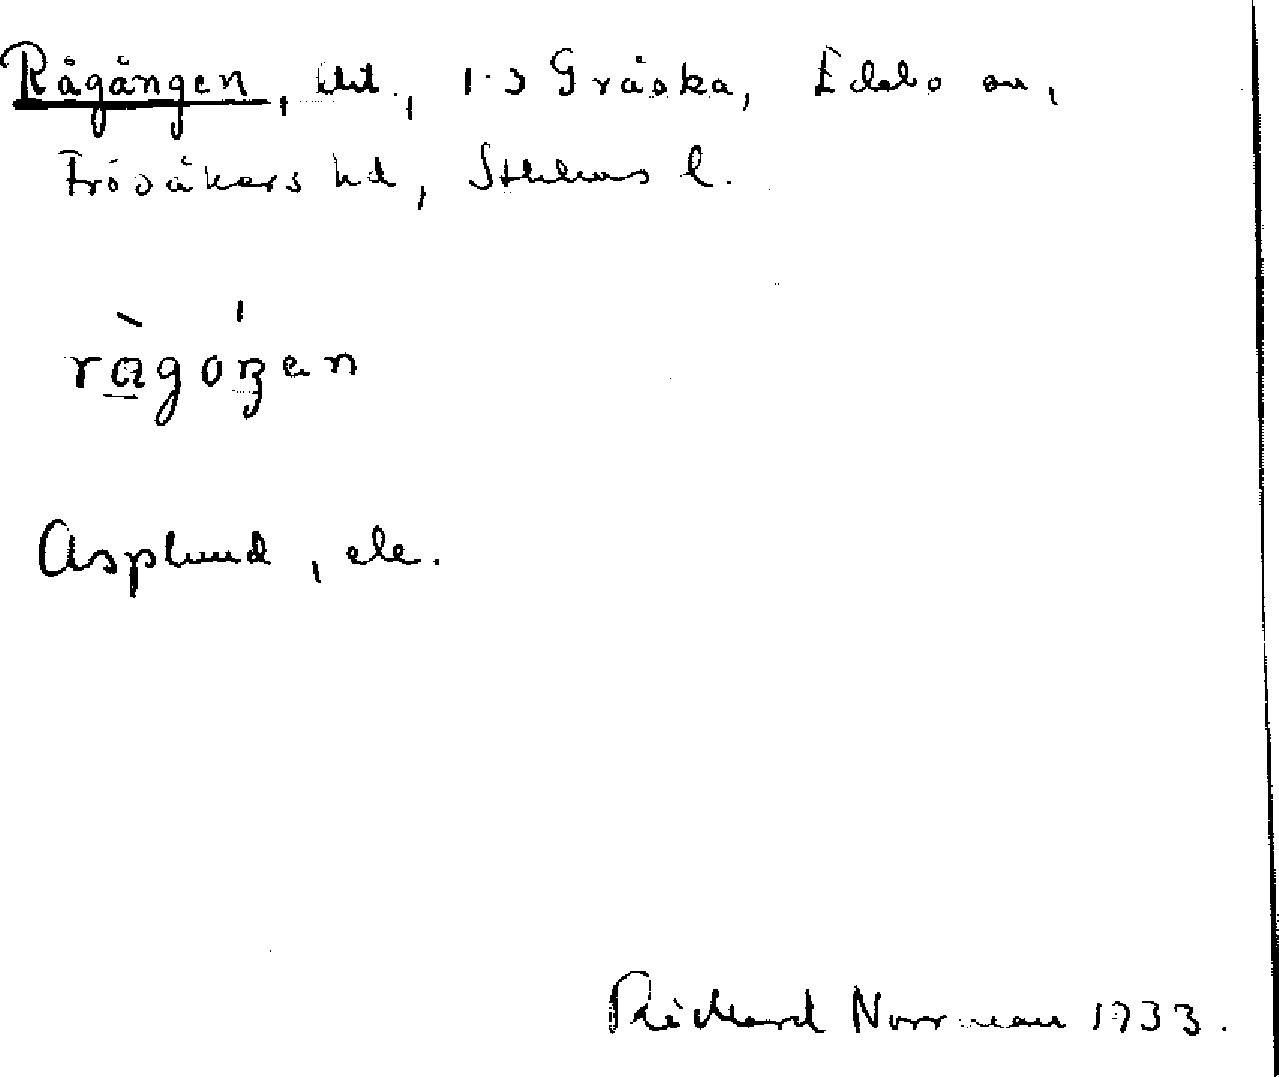 Rågången, lht., 1-3 Gräska, Edebo sn,
Frösåkers hd, Sthlms l.
rågoŋen
Asplund, ele.
Richard Norrman 1933.